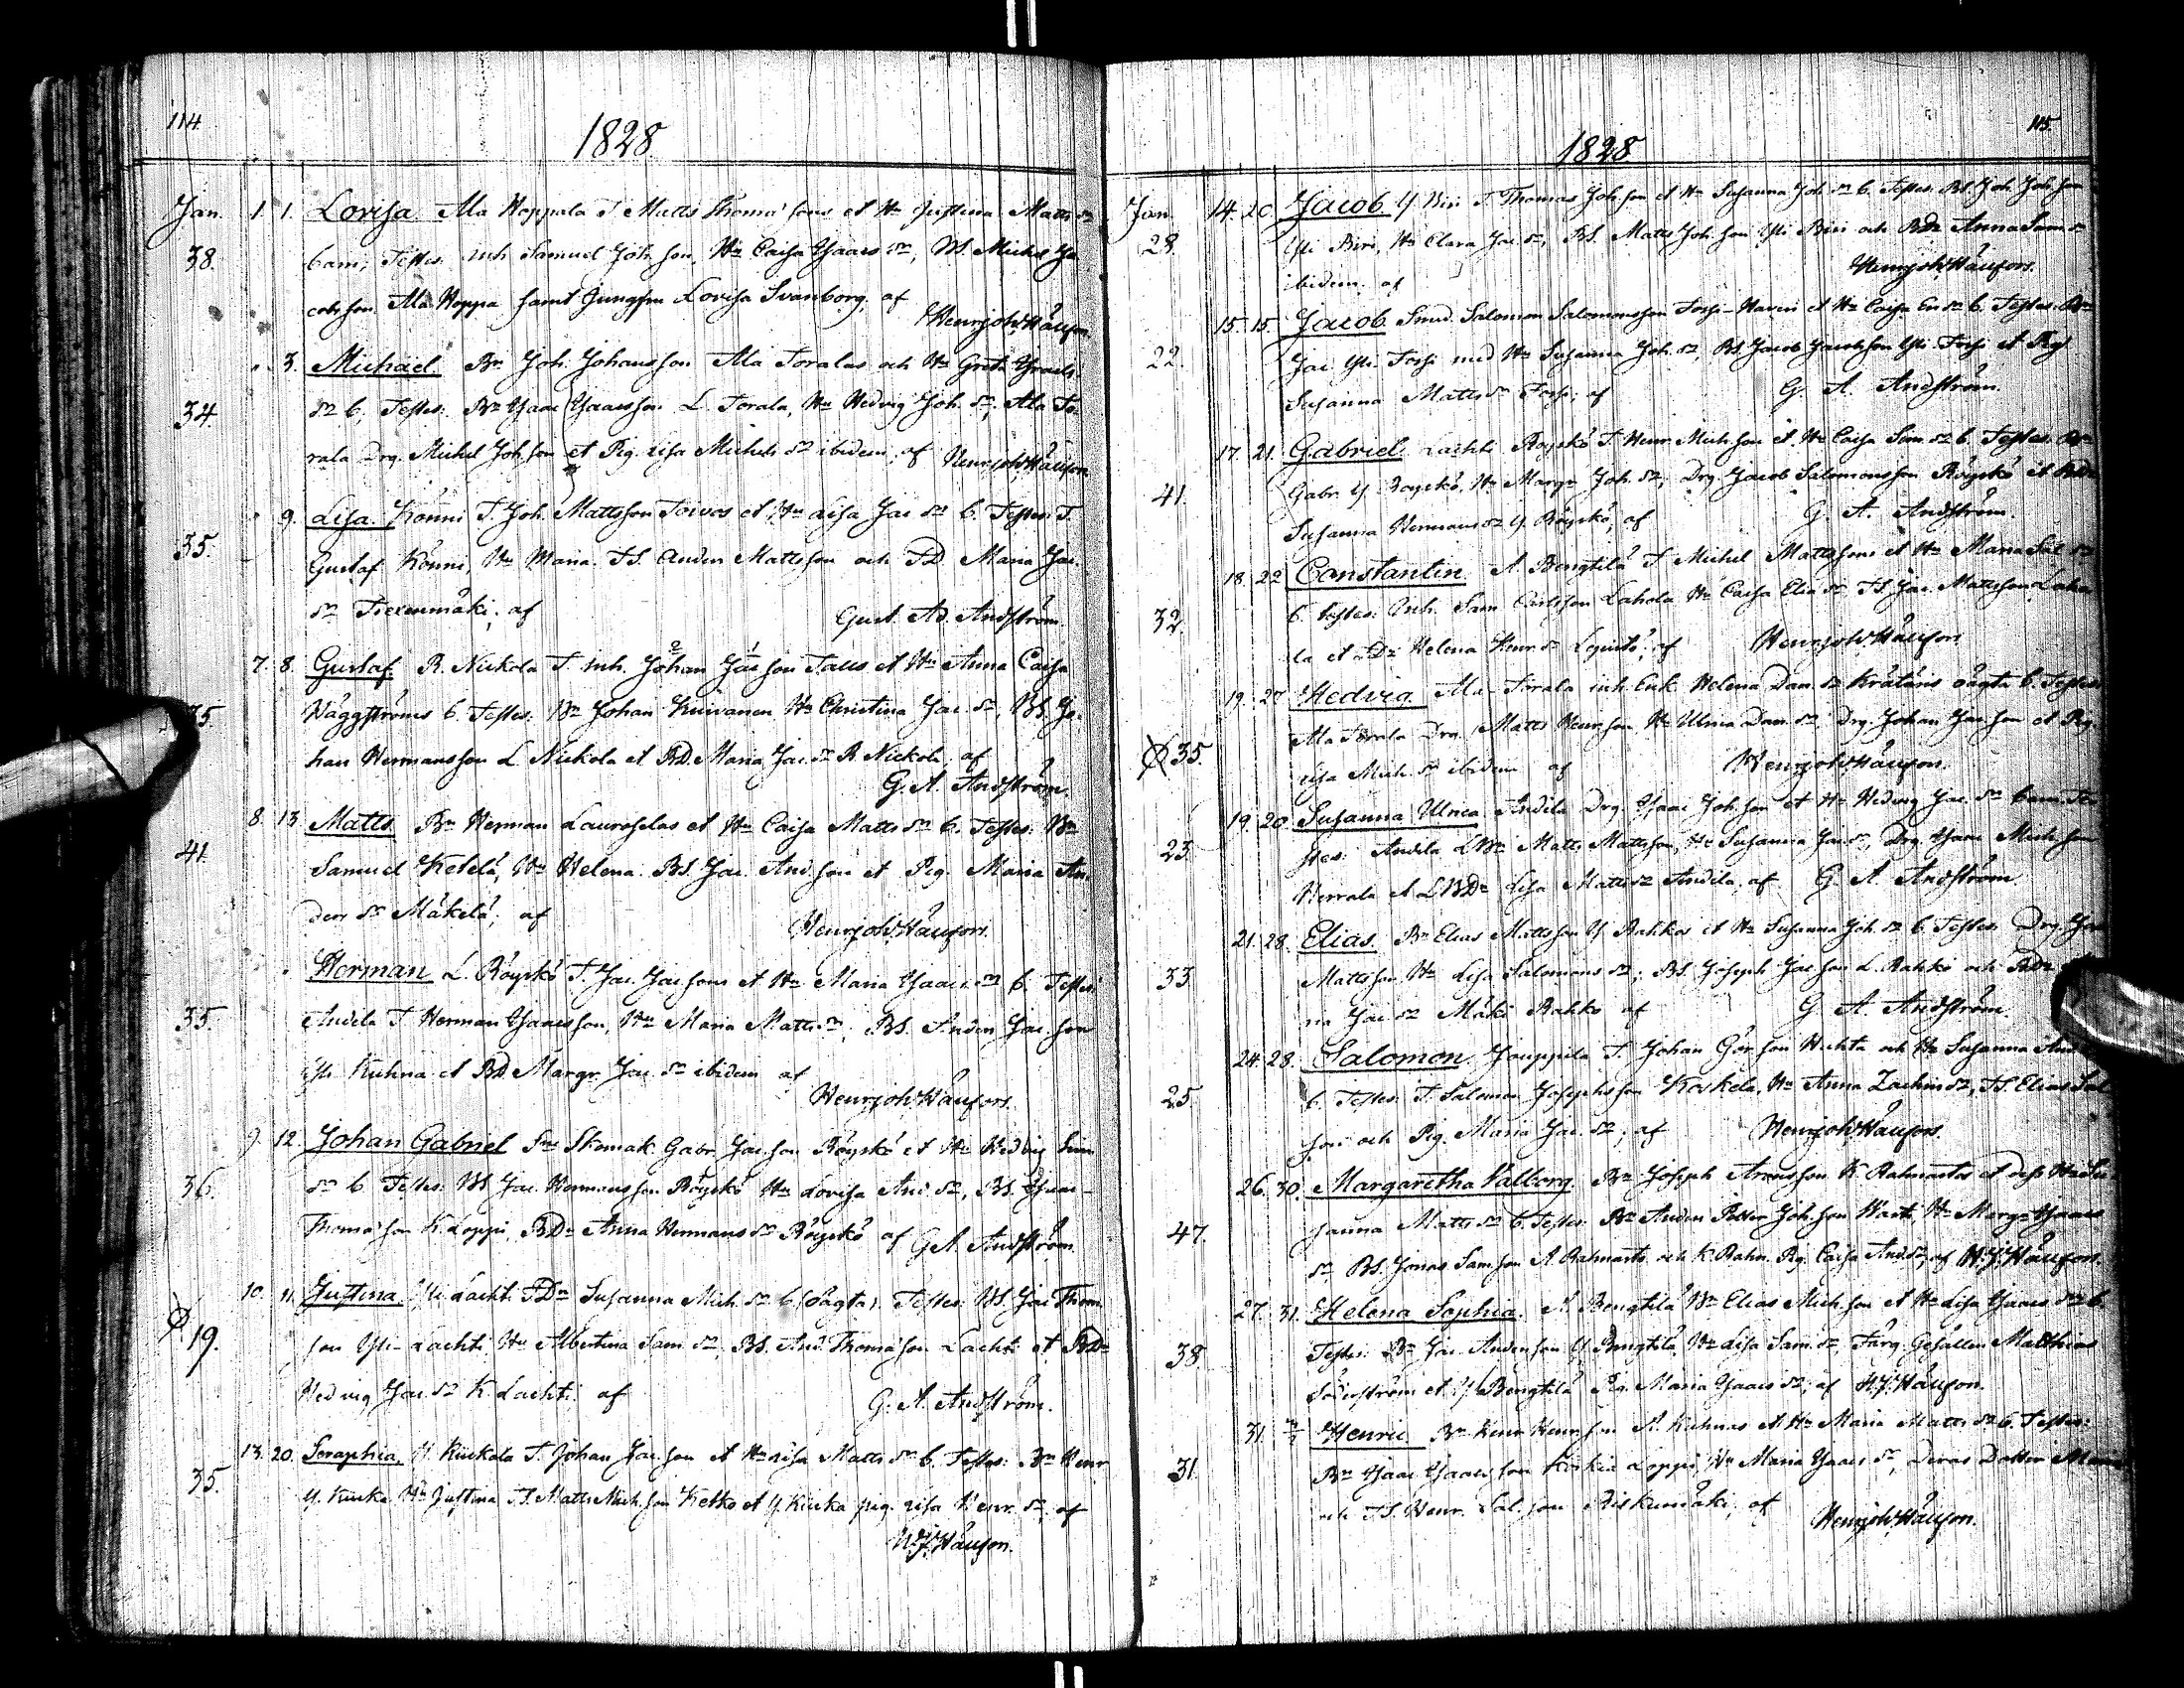 114.
1828
Jan. 1. 1. Lovisa Ala Hoppala T. Matts Thomæsons et Hu Justina Mattsdr
38. barn; Testes: Inh. Samuel Joh.son, Hu Caisa Isaacs dr, BS. Michel Ja-
cobsson Ala Hoppa samt Jungfru Lovisa Svanborg; af Henr. Joh. Håufors.
3. Michael. Bn Joh. Johansson Ala Toralas och Hu Greta Israels
34. dr b. Testes: Bn Isaac Isaacsson L. Torala, Hu Hedvig Joh. dr, Ala To-
rala Drg. Michel Joh.son et Pig. Lisa Michels dr ibidem, af Henr. Joh. Håufors.
9. Lisa Könni T. Joh. Mattsson Toivos et Hu Lisa Jac. dr b. Testes: T.
35. Gustaf Könni, Hu Maria. TS. Anders Mattsson och TD. Maria Jac.
dr; af Gust. Ad. Andström.
7. 8. Gustaf. R. Nickola T. inh. Johan Jac.son Talus et Hu Anna Caisa
35. Häggströms b. Testes: Bn Johan Kuivanen Hu Christina Jac. dr, BS. Jo-
han Hermansson L. Nickola et BD. Maria Jac. dr R. Nickola; af
G. A. Andström.
8. 13. Matts. Bn Herman Lauroselas et Hu Caisa Matts dr b. Testes: Bn
41. Samuel Ketelä, Hu Helena. BS. Jac. And.son et Pig. Maria An-
ders dr Mäkelä; af Henr. Joh. Håufors.
Herman L. Röyskö T. Jac. Jac.sons et Hu Maria Isaacs dr b. Testes:
35. Andila T. Herman Isaacsson, Hu Maria Matts dr; BS. Anders Jac.son
Yli Kuhna et BD. Margr. Jac. dr ibidem af
Henr. Joh. Håufors.
9. 12. Johan Gabriel Sn Skomak. Gabr. Jac.son Röyskö et Hu Hedvig Sim.
36. dr b. Testes: BS. Jac. Hermansson Röyskö Hu Lovisa And. dr, BS. Isaac
Thomæson K. Loppi, BDr Anna Hermans dr Röyskö af G. A. Andström.
10. 11. Justina. Yli Lachti TDr Susanna Mich. dr b. (oägta). Testes: BS. Jac. Thom.
19. son Yli-Lachti, Hu Albertina Sam. dr, BS. And. Thomæson Lachti et BDr
Hedvig Jac. dr K. Lachti. af G. A. Andström.
13. 20. Seraphia. Y. Kuckola T. Johan Jac.son et Hu Lisa Matts dr b. Testes: Bn Henr.
35. Y. Kucka Hu Justina TS. Matts Mich.son Ketko et Y. Kucka pig. Lisa Henr. dr, af
H. J. Håufors.
115.
1828
Jan. 14. 20. Jacob. Y. Biri T. Thomas Joh.son et Hu Susanna Joh. dr b. Testes: BS. Joh. Joh.son
28. Yli Biri, Hu Clara Jac. dr, BS. Matts Joh.son Yli Biri och BDr Anna Sam. dr
ibidem, af Henr. Joh. Håufors.
15. 15. Jacob Smed. Salomon Salomonsson Forss-Haveri et Hu Caisa Er. dr b. Testes: Bn
22. Jac. Yli Forsi med Hu Susanna Joh. dr, BS. Jacob Jacobsson Yli-Forsi et Pig.
Susanna Matts dr Forsi; af G. A. Andström.
17. 21. Gabriel. Lachti Röyskö T. Henr. Mich.son et Hu Caisa Sim. dr b. Testes: Bn
41. Gabr. Y. Röyskö, Hu Margr. Joh. dr; Drg. Jacob Salomonsson Röyskö et BDr
Susanna Hermans dr Y. Röyskö; af G. A. Andström.
18. 22. Constantin. A. Bengtilä T. Michel Mattssons et Hu Maria Sal. dr
32. b. Testes: Inh. Sam. Carlsson Lahola Hu Caisa Elia dr TS. Jac. Mattsson Laho-
la et Dr Helena Henr. dr; af Henr. Joh. Håufors.
19. 27. Hedvig. Ala-Torala inh. Enk. Helena Dan. dr oägta b. Testes:
35. Ala Torala Drg. Matts Henr.son Hu Ulrica Dan. dr Drg. Johan Jac.son et Pig.
Lisa Mich. dr ibidem af Henr. Joh. Håufors.
19. 20. Susanna Ulrica Andila Drg. Isaac Joh.son et Hu Hedvig Jac. dr barn. Te-
23. stes: Andila LBn Matts Mattsson, Hu Susanna Jac. dr, Drg. Isaac Mich.son
Herrala et LBDr Lisa Matts dr Andila. af G. A. Andström.
21. 28. Elias. Bn Elias Mattsson Y. Rahkos et Hu Susanna Joh. dr b. Testes: Drg. Jac.
33. Mattsson Hu Lisa Salomons dr; BS. Joseph Jac.son L. Rahko och BDr
na Jac. dr Mäki Rahko af G. A. Andström.
24. 28. Salomon. Jouppila T. Johan Gör.son Huhta och Hu Susanna And.
25. b. Testes: T. Salomon Josephsson Koskela, Hu Anna Zachris dr, TS. Elias Sal.
son och Pig. Maria Jac. dr; af Henr. Joh. Håufors.
26. 30. Margaretha Valborg. Bn Joseph Aronsson K. Rahnasto et dess Hu Su-
47. sanna Matts dr b. Testes: Bn Anders Petter Joh.son Hu Margr. Isaacs
dr BS. Jonas Sam.son A. Rahnasto och K. Rahn. Pig. Caisa And. dr, af H. J. Håufors.
27. 31. Helena Sophia. A. Bengtilä Bn Elias Mich.son et Hu Lisa Isaacs dr b.
38. Testes: Bn Jac. Anderson Y. Bengtilä, Hu Lisa Sam. dr, Färg. Gesällen Matthias
Söderström et Y. Bengtilä Pig. Maria Isaacs dr; af H. J. Håufors.
31. Henric. Bn Henr. Henr.son A. Kuhnas et Hu Maria Matts dr b. Testes:
31. Bn Isaac Isaacsson Koskia Loppi, Hu Maria Isaacs dr, Deras Dotter Maria
och TS. Henr. Sal.son; af Henr. Joh. Håufors.